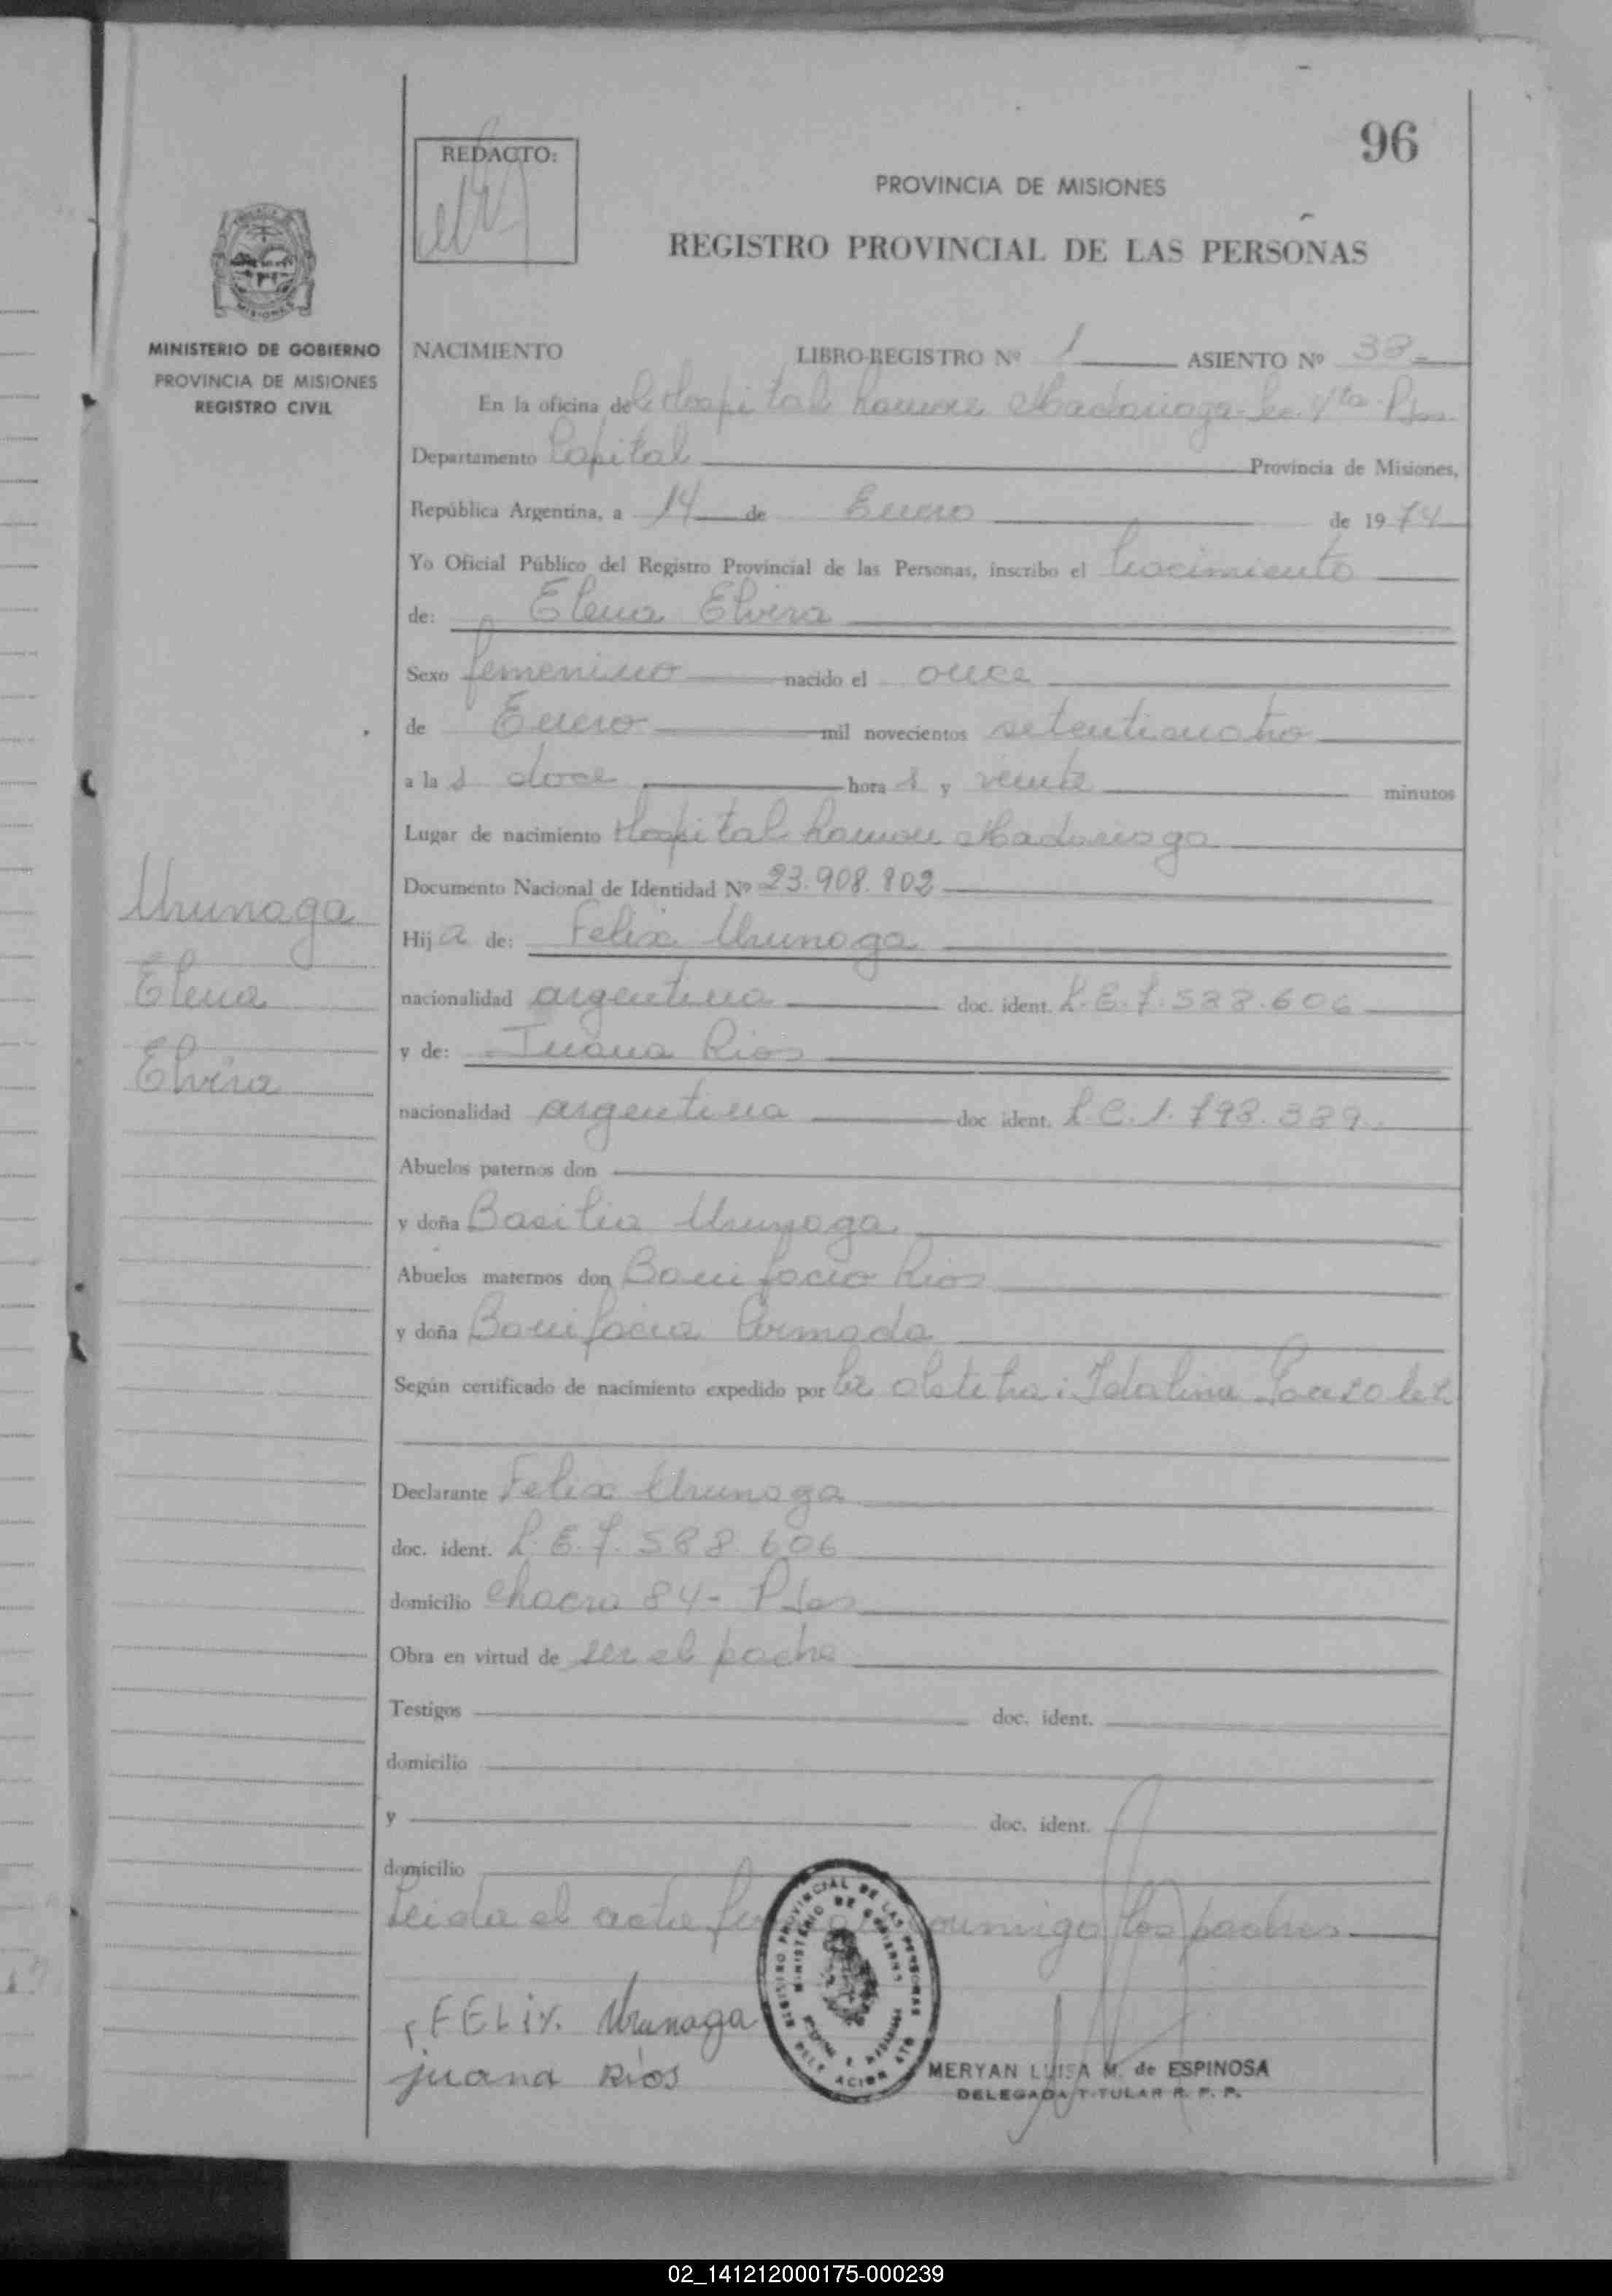 96
REDACTO:
PROVINCIA DE MISIONES
REGISTRO PROVINCIAL DE LAS PERSONAS
MISIONES
MINISTERIO DE GOBIERNO
PROVINCIA DE MISIONES
REGISTRO CIVIL
NACIMIENTO LIBRO-REGISTRO Nº 1 ASIENTO Nº 38
En la oficina del Hospital Ramon Madariaga Pdas
Departamento Capital Provincia de Misiones,
República Argentina, a 14 de Enero de 1974
Yo Oficial Público del Registro Provincial de las Personas, inscribo el Nacimiento
de: Elena Elvira
Sexo femenino nacido el once
de Enero mil novecientos setenticuatro
a la s doce hora s y veinte minutos
Lugar de nacimiento Hospital Ramon Madariaga
Documento Nacional de Identidad Nº 23.908.802
Urunaga
Hij a de: Felix Urunaga
Elena
nacionalidad argentina doc. ident. L.E. 7.588.606
y de: Juana Rios
Elvira
nacionalidad argentina doc ident. L.C. 1.798.389
Abuelos paternos don
y doña Basilia Urunaga
Abuelos maternos don Bonifacio Rios
y doña Bonifacia Armada
Según certificado de nacimiento expedido por la obstetra: Idalina Gonzalez
Declarante Felix Urunaga
doc. ident. L.E. 7.588.606
domicilio chacra 84- Pdas
Obra en virtud de ser el padre
Testigos doc. ident.
domicilio
y doc. ident.
domicilio
Leida el acta conmigo los padres
REGISTRO PROVINCIAL DE LAS PERSONAS
MINISTERIO DE GOBIERNO
FELIX. Urunaga
juana Rios
MERYAN LUISA M. de ESPINOSA
DELEGADA TITULAR R. P. P.
02_141212000175-000239